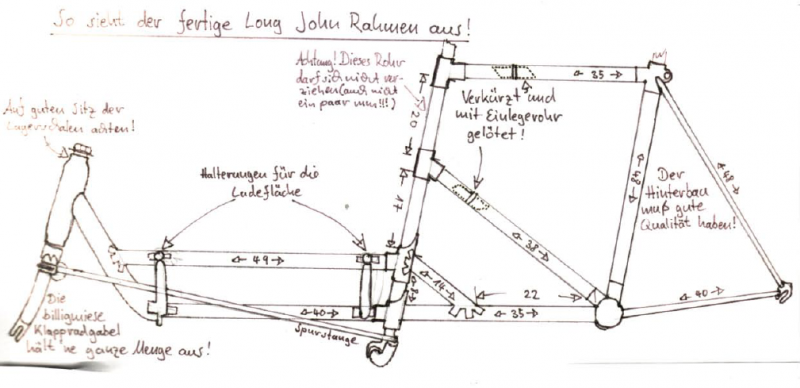 So sieht der fertige Long John Rahmen aus!
Achtung! Dieses Rohr
darf sich nicht ver-
ziehen (auch nicht
ein paar mm!!!)
35
Auf guten Sitz der
Lagerschalen achten!
20
Verkürzt und
mit Einlegerohr
gelötet!
Halterungen für die
Ladefläche
17
48
Der
Hinterbau
muß gute
Qualität haben!
48
49
38
14
22
40
Die
billigmiese
Klappradgabel
hält 'ne ganze Menge aus!
40
35
Spurstange